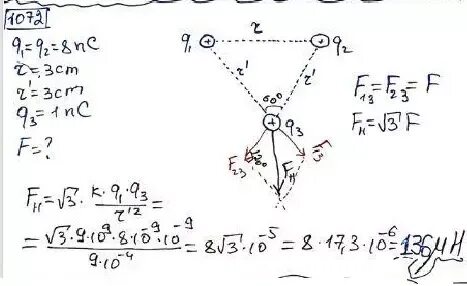 1072
q₁=q₂=8nC
r=3cm
r'=3cm
q₃=1nC
F=?
q₁ r q₂
r' r'
60°
q₃
F₂₃ Fн
F₁₃=F₂₃=F
Fн=√3 F
Fн=√3 · k·q₁·q₃ / r'² =
= √3·9·10⁹·8·10⁻⁹·10⁻⁹ / 9·10⁻⁴ = 8√3·10⁻⁵ = 8·17,3·10⁻⁶ = 136 мН